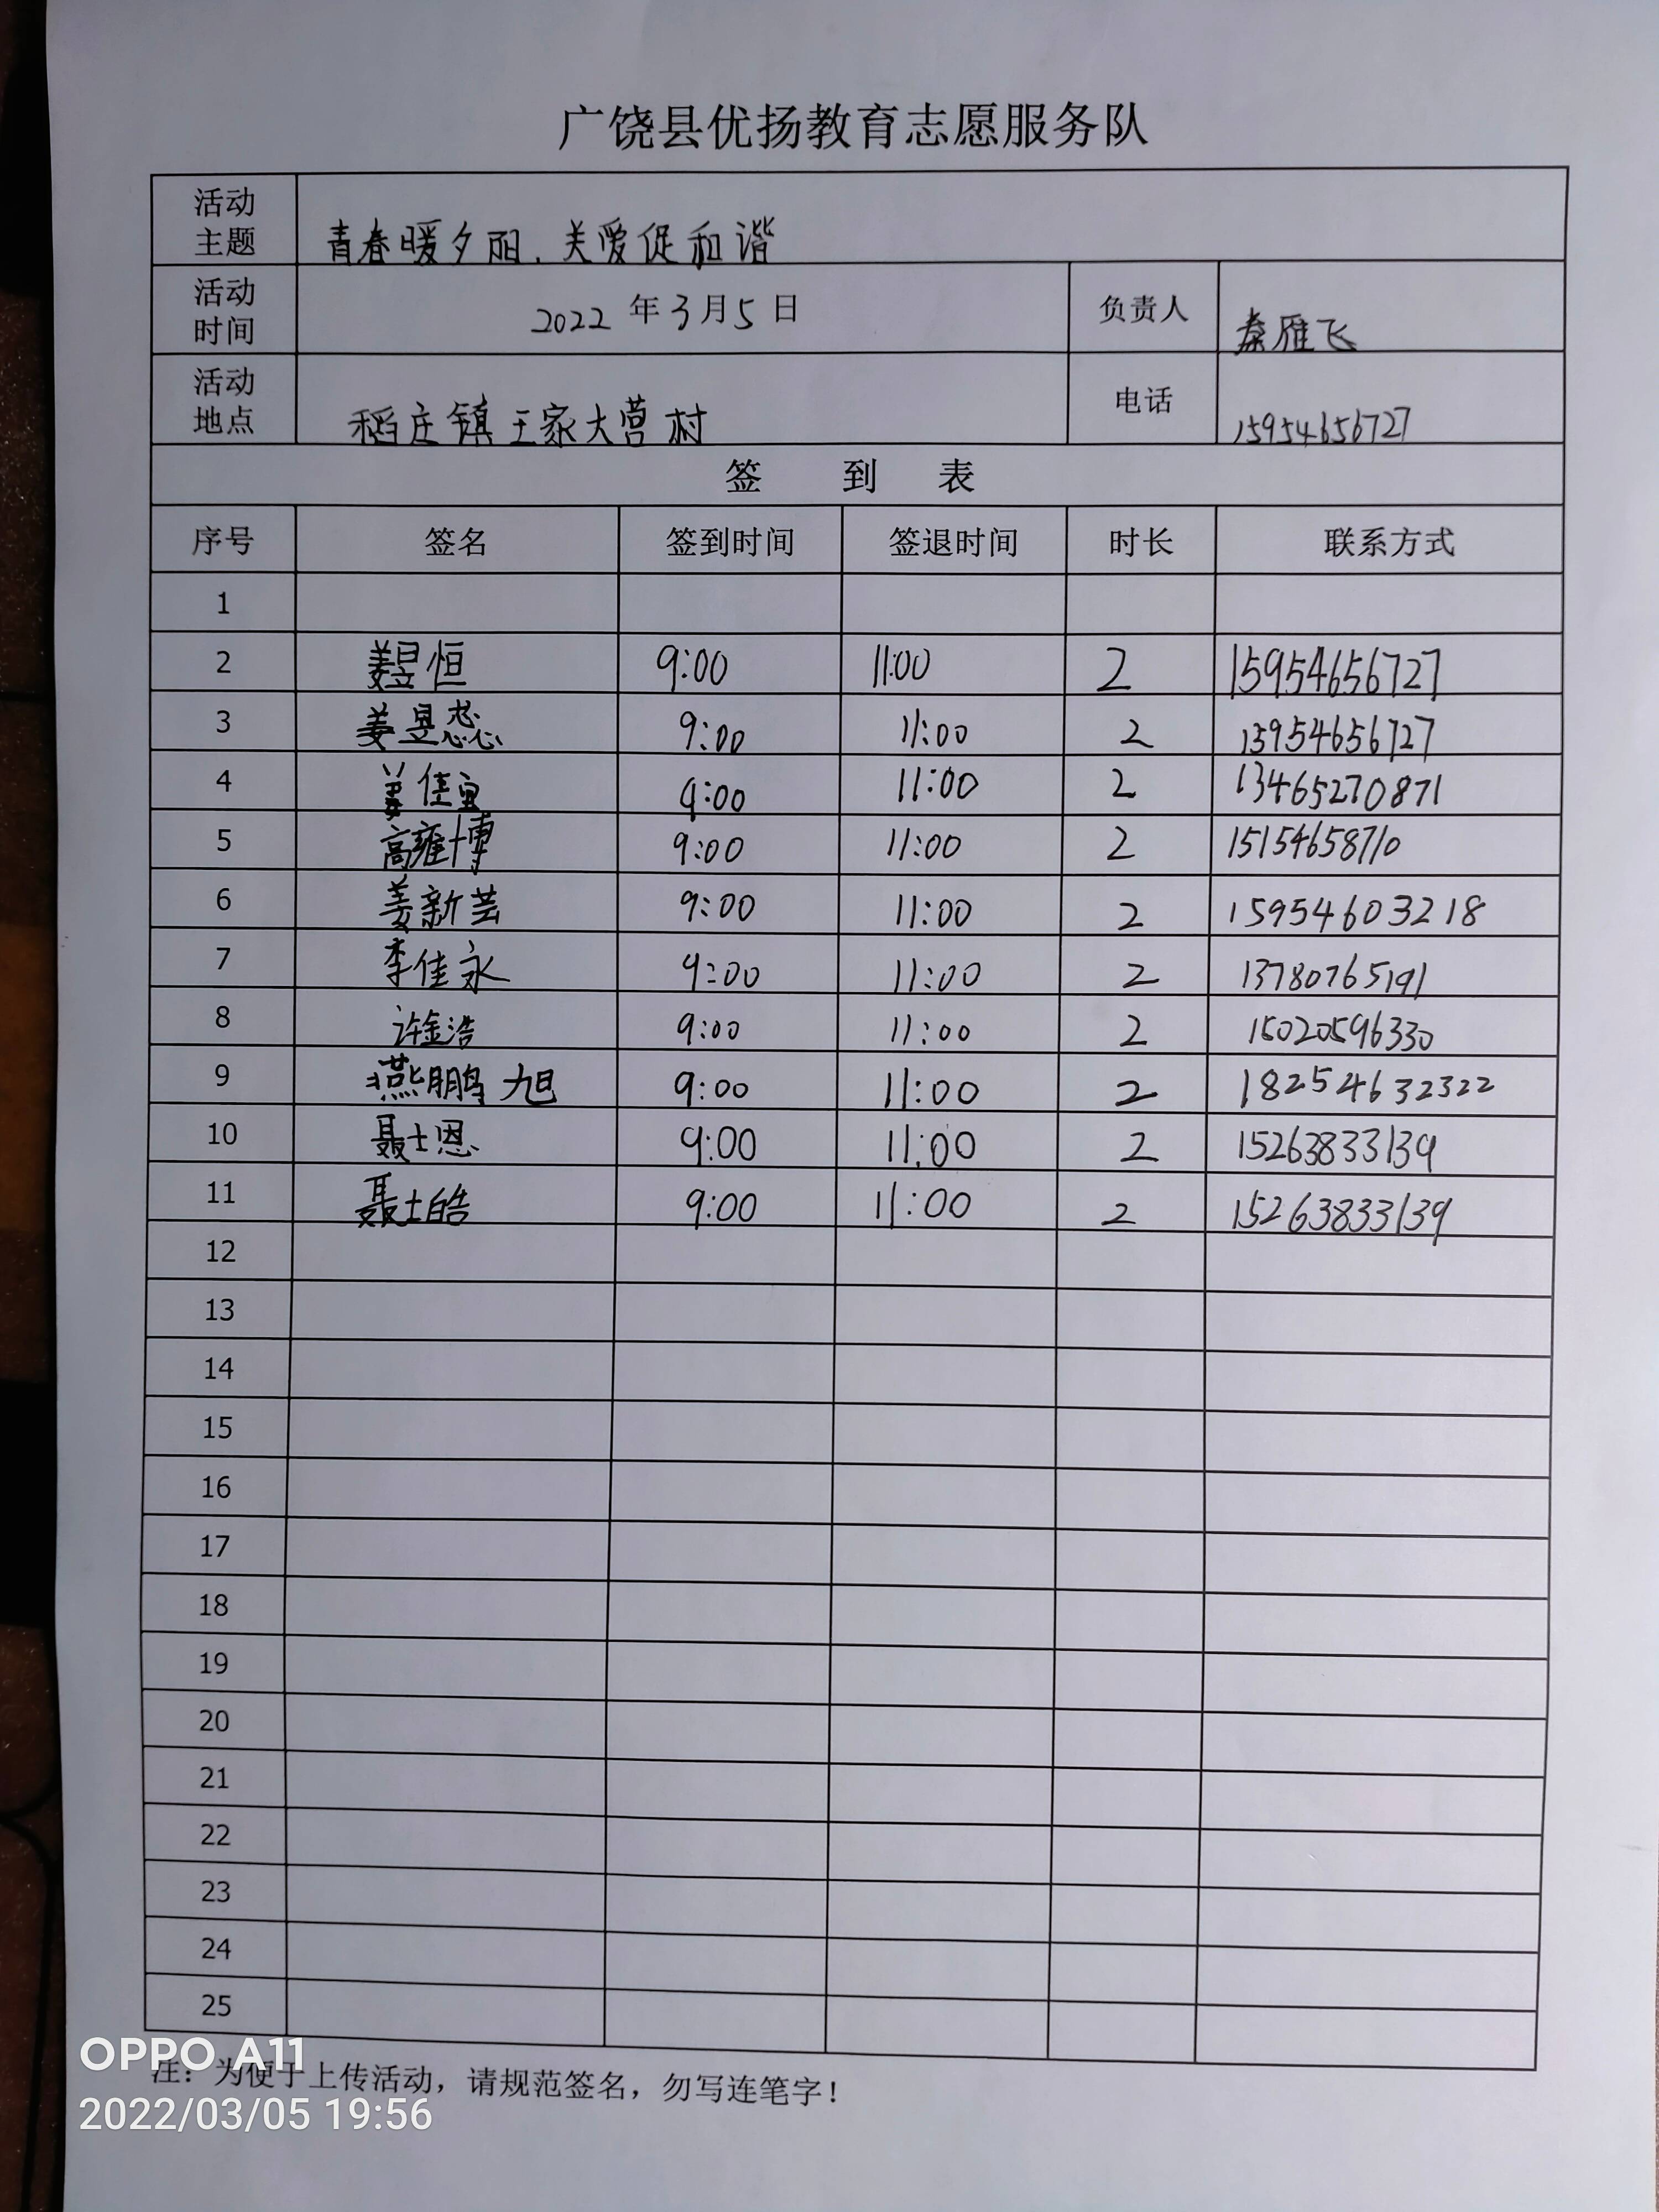 广饶县优扬教育志愿服务队
活动主题 青春暖夕阳.关爱促和谐
活动时间 2022年3月5日 负责人 秦雁飞
活动地点 稻庄镇王家大营村 电话 15954656727
签到表
序号 签名 签到时间 签退时间 时长 联系方式
1
2 姜昱恒 9:00 11:00 2 15954656727
3 姜昱蕊 9:00 11:00 2 15954656727
4 姜佳宜 9:00 11:00 2 13465270871
5 高雍博 9:00 11:00 2 15154658710
6 姜新芸 9:00 11:00 2 15954603218
7 李佳永 9:00 11:00 2 13780765191
8 许金浩 9:00 11:00 2 15020596330
9 燕鹏旭 9:00 11:00 2 18254632322
10 聂士恩 9:00 11:00 2 15263833139
11 聂士皓 9:00 11:00 2 15263833139
12
13
14
15
16
17
18
19
20
21
22
23
24
25
注：为便于上传活动，请规范签名，勿写连笔字！
OPPO A11
2022/03/05 19:56